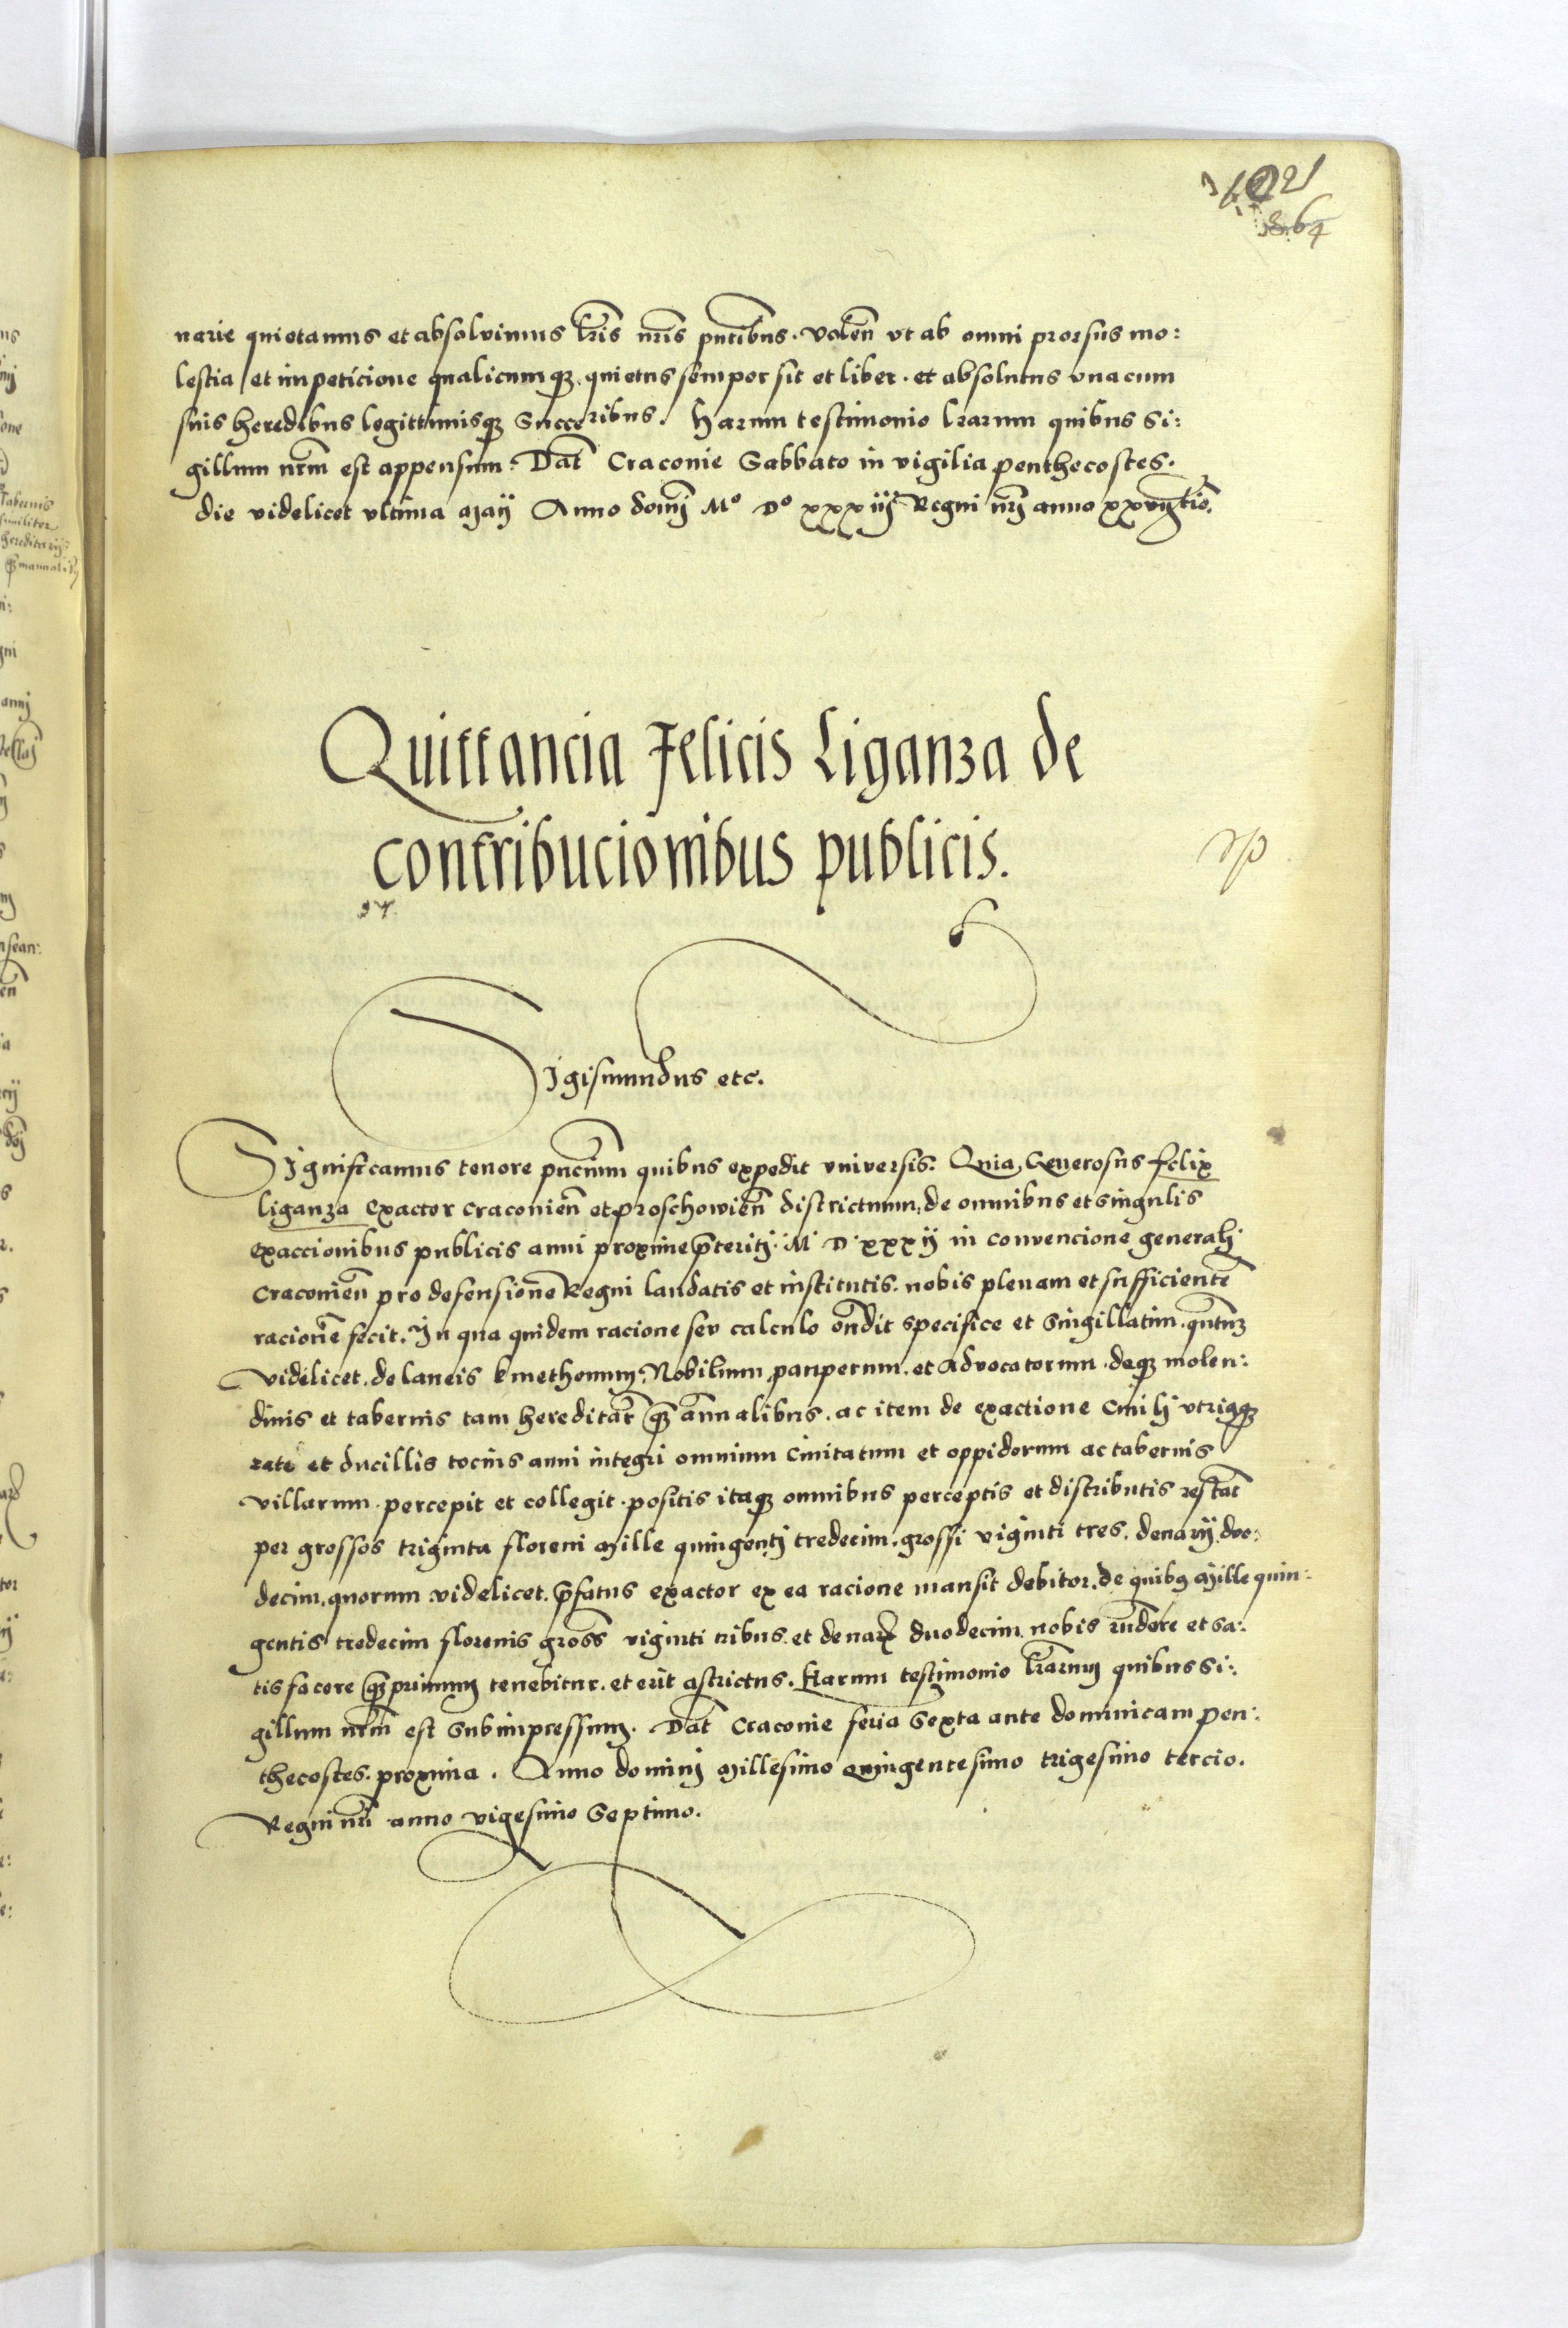 narie quietamus et absolvimus lr̃is nr̃is pñtibus. volen̄ vt ab omni prorsus mo:
lestia et impeticione qualicumqȝ. quietus semper sit et liber. et absolutus vnacum
suis heredibus legittimisqȝ Succeribus. harum testimonio lrarum quibus Si:
gillum nr̃m est appensum. Dat̃ Craconie Sabbato in vigilia penthecostes.
die videlicet vltima Maij Anno domĩ Mº Dº xxxiij Regni nr̃i anno
Quittancia Felicis Liganza de
contribucionibus publicis.
Sigismundus etc.
Significamus tenore pñcium quibus expedit vniversis. Quia Generosus felix
liganza Exactor craconien̄ et proschowien̄ districtuum, de omnibus et singulis
exaccionibus publicis anni proxime p̃teriti. M. D. xxxij in convencione generali
Craconien̄ pro defensione Regni laudatis et institutis. nobis plenam et sufficientẽ
racionẽ fecit. In qua quidem racione seu calculo on̄dit specifice et Singillatim. quñtum
videlicet. de laneis kmethonum, Nobilium pauperum. et Advocatorum. deqȝ molen:
dinis et tabernis tam hereditar̃ qȝ annalibus. ac item de exactione Civili vtriqȝ
rate et ducillis tocius anni integri omnium Civitatum et oppidorum ac tabernis
villarum. percepit et collegit. positis itaqȝ omnibus perceptis et distributis restat̃
per grossos triginta floreni Mille quingenti tredecim. grossi viginti tres. denarij duo:
decim. quorum videlicet. p̃fatus exactor ex ea racione mansit debitor. de quibꝰ Mille quin:
gentis tredecim florenis gross̃ viginti tribus. et denar̃ duodecim nobis rñdere et sa:
tisfacere qȝprimum tenebitur. et erit astrictus. Harum testimonio lr̃arum quibus Si:
gillum nr̃m est Subimpressum. Dat̃ Craconie feria Sexta ante dominicam pen:
thecostes. proxima. Anno domini Millesimo quingentesimo trigesimo tercio.
Regni nr̃i anno vigesimo Septimo.